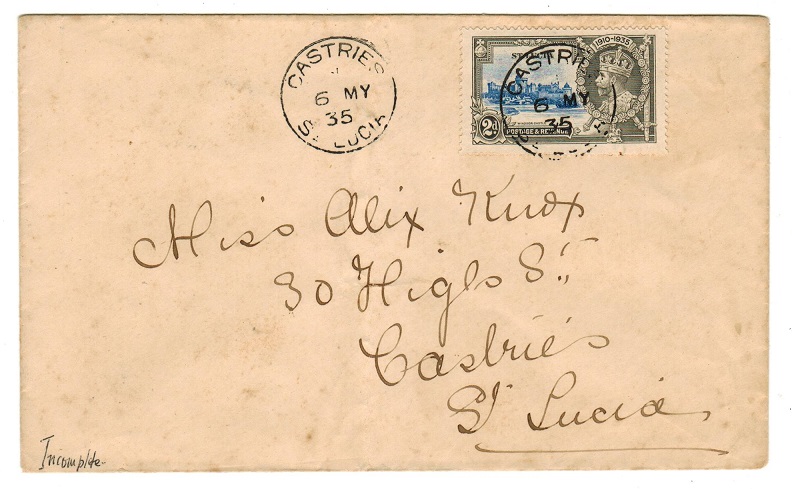 CASTRIES
6 MY
35
ST LUCIA
1910-1935
2d
POSTAGE & REVENUE
CASTRIES
6 MY
35
Miss Alix Knox
30 High St
Castries
St Lucia
Incomplete